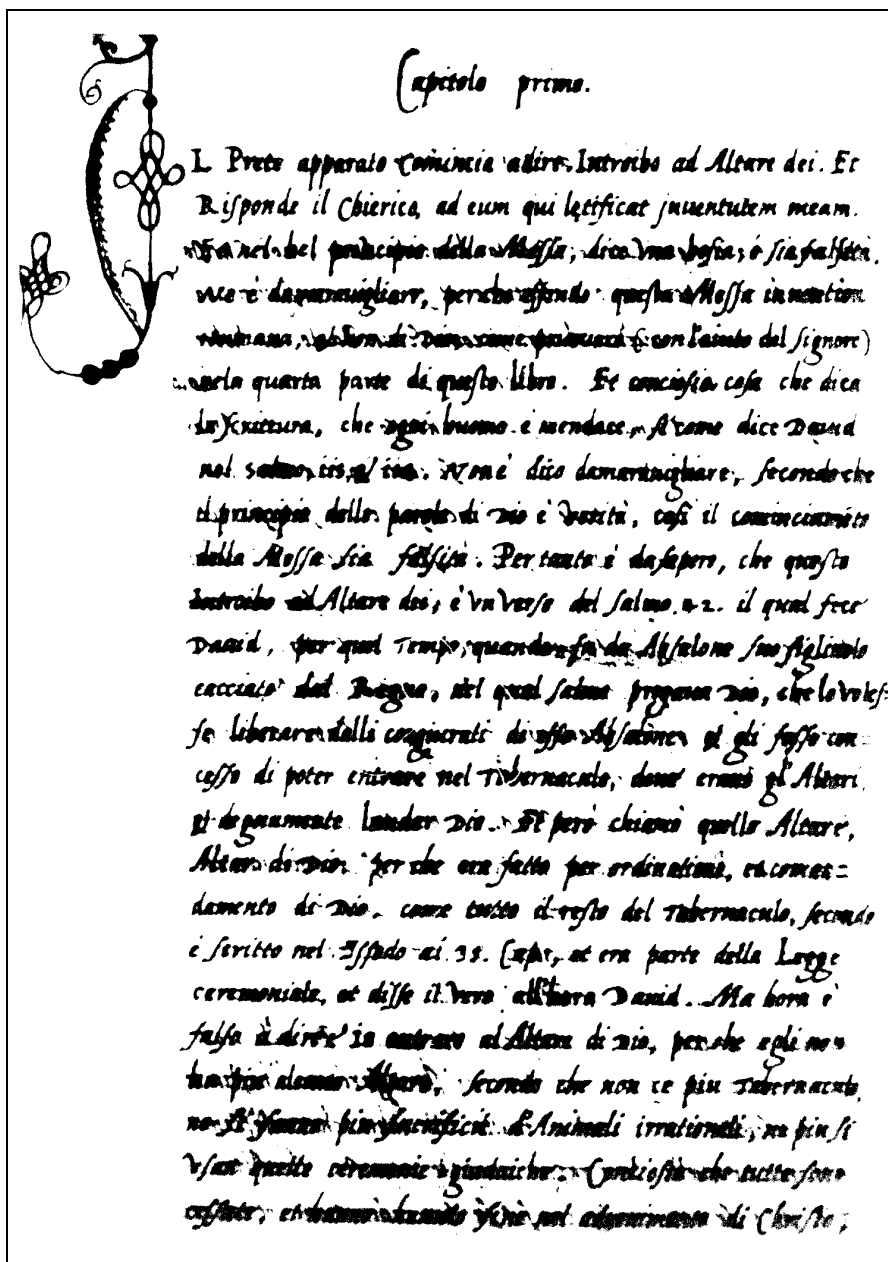 Capitolo primo.
IL Prete apparato comincia a dire. Introibo ad Altare dei. Et
Risponde il Chierico, ad eum qui lętificat juuentutem meam.
nel bel principio della Messa, dice vna bosia, ó sia falsità.
è da marauigliare, perche essendo questa Messa inuention
humana, con l'aiuto del signore)
nela quarta parte di questo libro. Et conciosia cosa che dica
la Scrittura, che ogni huomo è mendace, come dice Dauid
nel salmo. Non è dico damarauigliare, secondo che
il principio delle parole di Dio è verità, cosi il cominciamēto
della Messa sia falsità. Per tanto è dasapere, che questo
Introibo ad Altare dei, è vn verso del salmo. 42. il qual fece
Dauid, per quel Tempo, quando fu da Absalone suo figliuolo
cacciato dal Regno, nel qual salmo pregaua Dio, che lo voles=
se liberare dalli congiurati di esso Absalone, et gli fosse con=
cesso di poter entrare nel Tabernaculo, doue erano gl'Altari
et degnamente laudar Dio. Et però chiamò quello Altare,
Altar di Dio. per che era fatto per ordinatione, et coman=
damento di Dio. come tutto il resto del Tabernaculo, secondo
è scritto nel Essodo ai 35. Cap., et era parte della Legge
ceremoniale, et disse il vero all'hora Dauid. Ma hora è
falso à dire io entrero al Altare di Dio, per che egli non
ha piu alcuno Altare, secondo che non ce piu Tabernaculo,
no si fanno piu sacrificii d'Animali irrationali, ne piu si
vsan quelle ceremonie giudaiche. Conciosia che tutte sono
cessate, et hanno hauuto fine nel aduenimento di Christo,